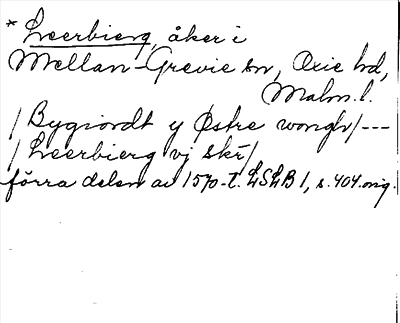 * Leerbierg, åker i
Mellan-Grevie sn, Oxie hd,
Malm. l.
/ Bygiordt y Østre wongh/ ---
/ Leerbierg vj skr/
förra delen av 1570-t. LSLB 1, s. 404. orig.